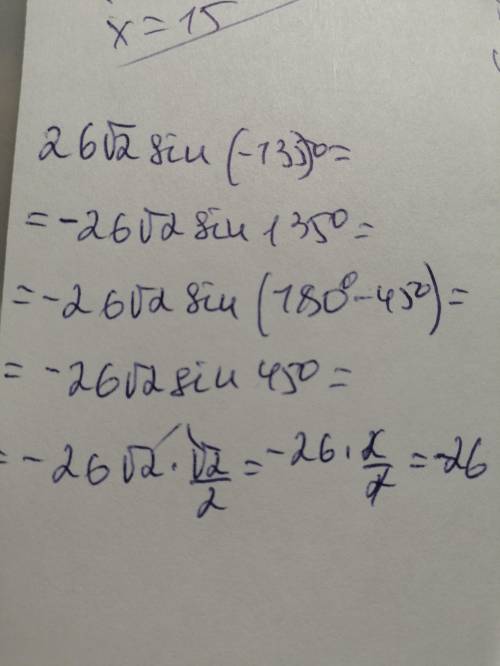 x = 15
26√2 sin (-135)° =
= -26√2 sin 135° =
= -26√2 sin (180° - 45°) =
= -26√2 sin 45° =
= -26√2 · √2/2 = -26 · 2/2 = -26